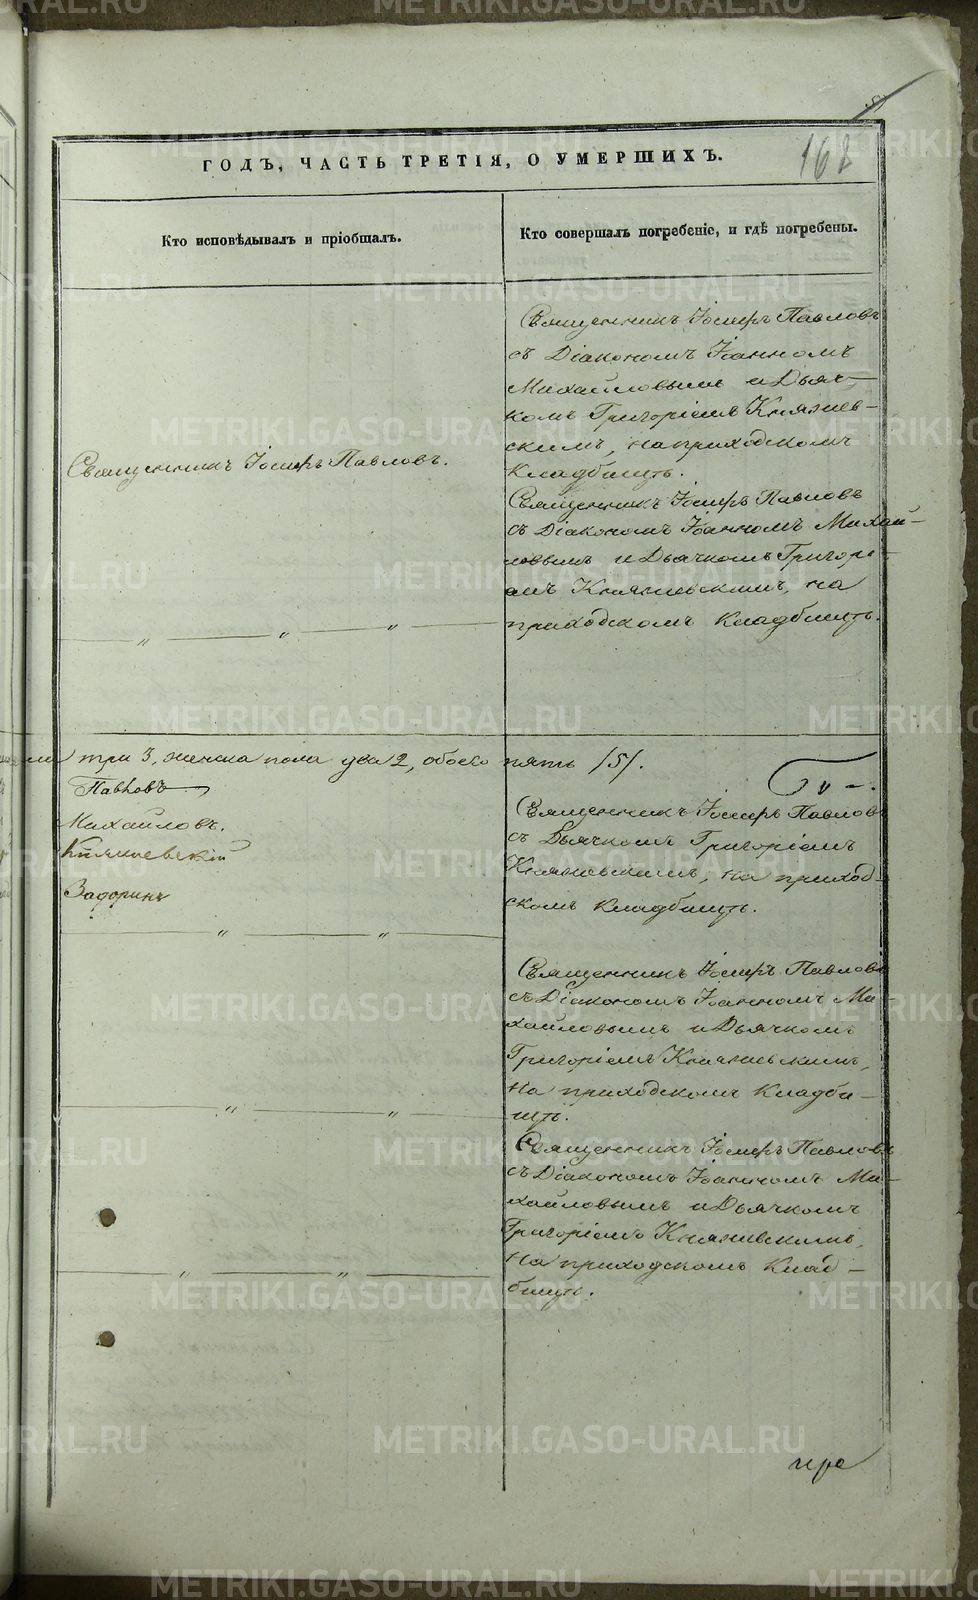 168
ГОДЪ, ЧАСТЬ ТРЕТІЯ, О УМЕРШИХЪ.
Кто исповѣдывалъ и пріобщалъ.
Кто совершалъ погребеніе, и гдѣ погребены.
Священникъ Іосифъ Павловъ
съ Діакономъ Іоанномъ
Михайловымъ и Дьяч-
комъ Григоріемъ Княжев-
скимъ, на приходскомъ
Кладбищѣ.
Священникъ Іосифъ Павловъ.
Священникъ Іосифъ Павловъ
съ Діакономъ Іоанномъ Михай-
ловымъ и Дьячкомъ Григорі-
емъ Княжевскимъ, на
приходскомъ Кладбищѣ.
три 3, женска пола два 2, обоего пять /5/.
Павловъ
Михайловъ.
Княжевскій
Задоринъ
Священникъ Іосифъ Павловъ
съ Дьячкомъ Григоріемъ
Княжевскимъ, на приход-
скомъ Кладбищѣ.
Священникъ Іосифъ Павловъ
съ Діакономъ Іоанномъ Ми-
хайловымъ и Дьячкомъ
Григоріемъ Княжевскимъ,
на приходскомъ Кладби-
щѣ.
Священникъ Іосифъ Павловъ
съ Діакономъ Іоанномъ Ми-
хайловымъ и Дьячкомъ
Григоріемъ Княжевскимъ,
на приходскомъ Клад-
бищѣ.
METRIKI.GASO-URAL.RU